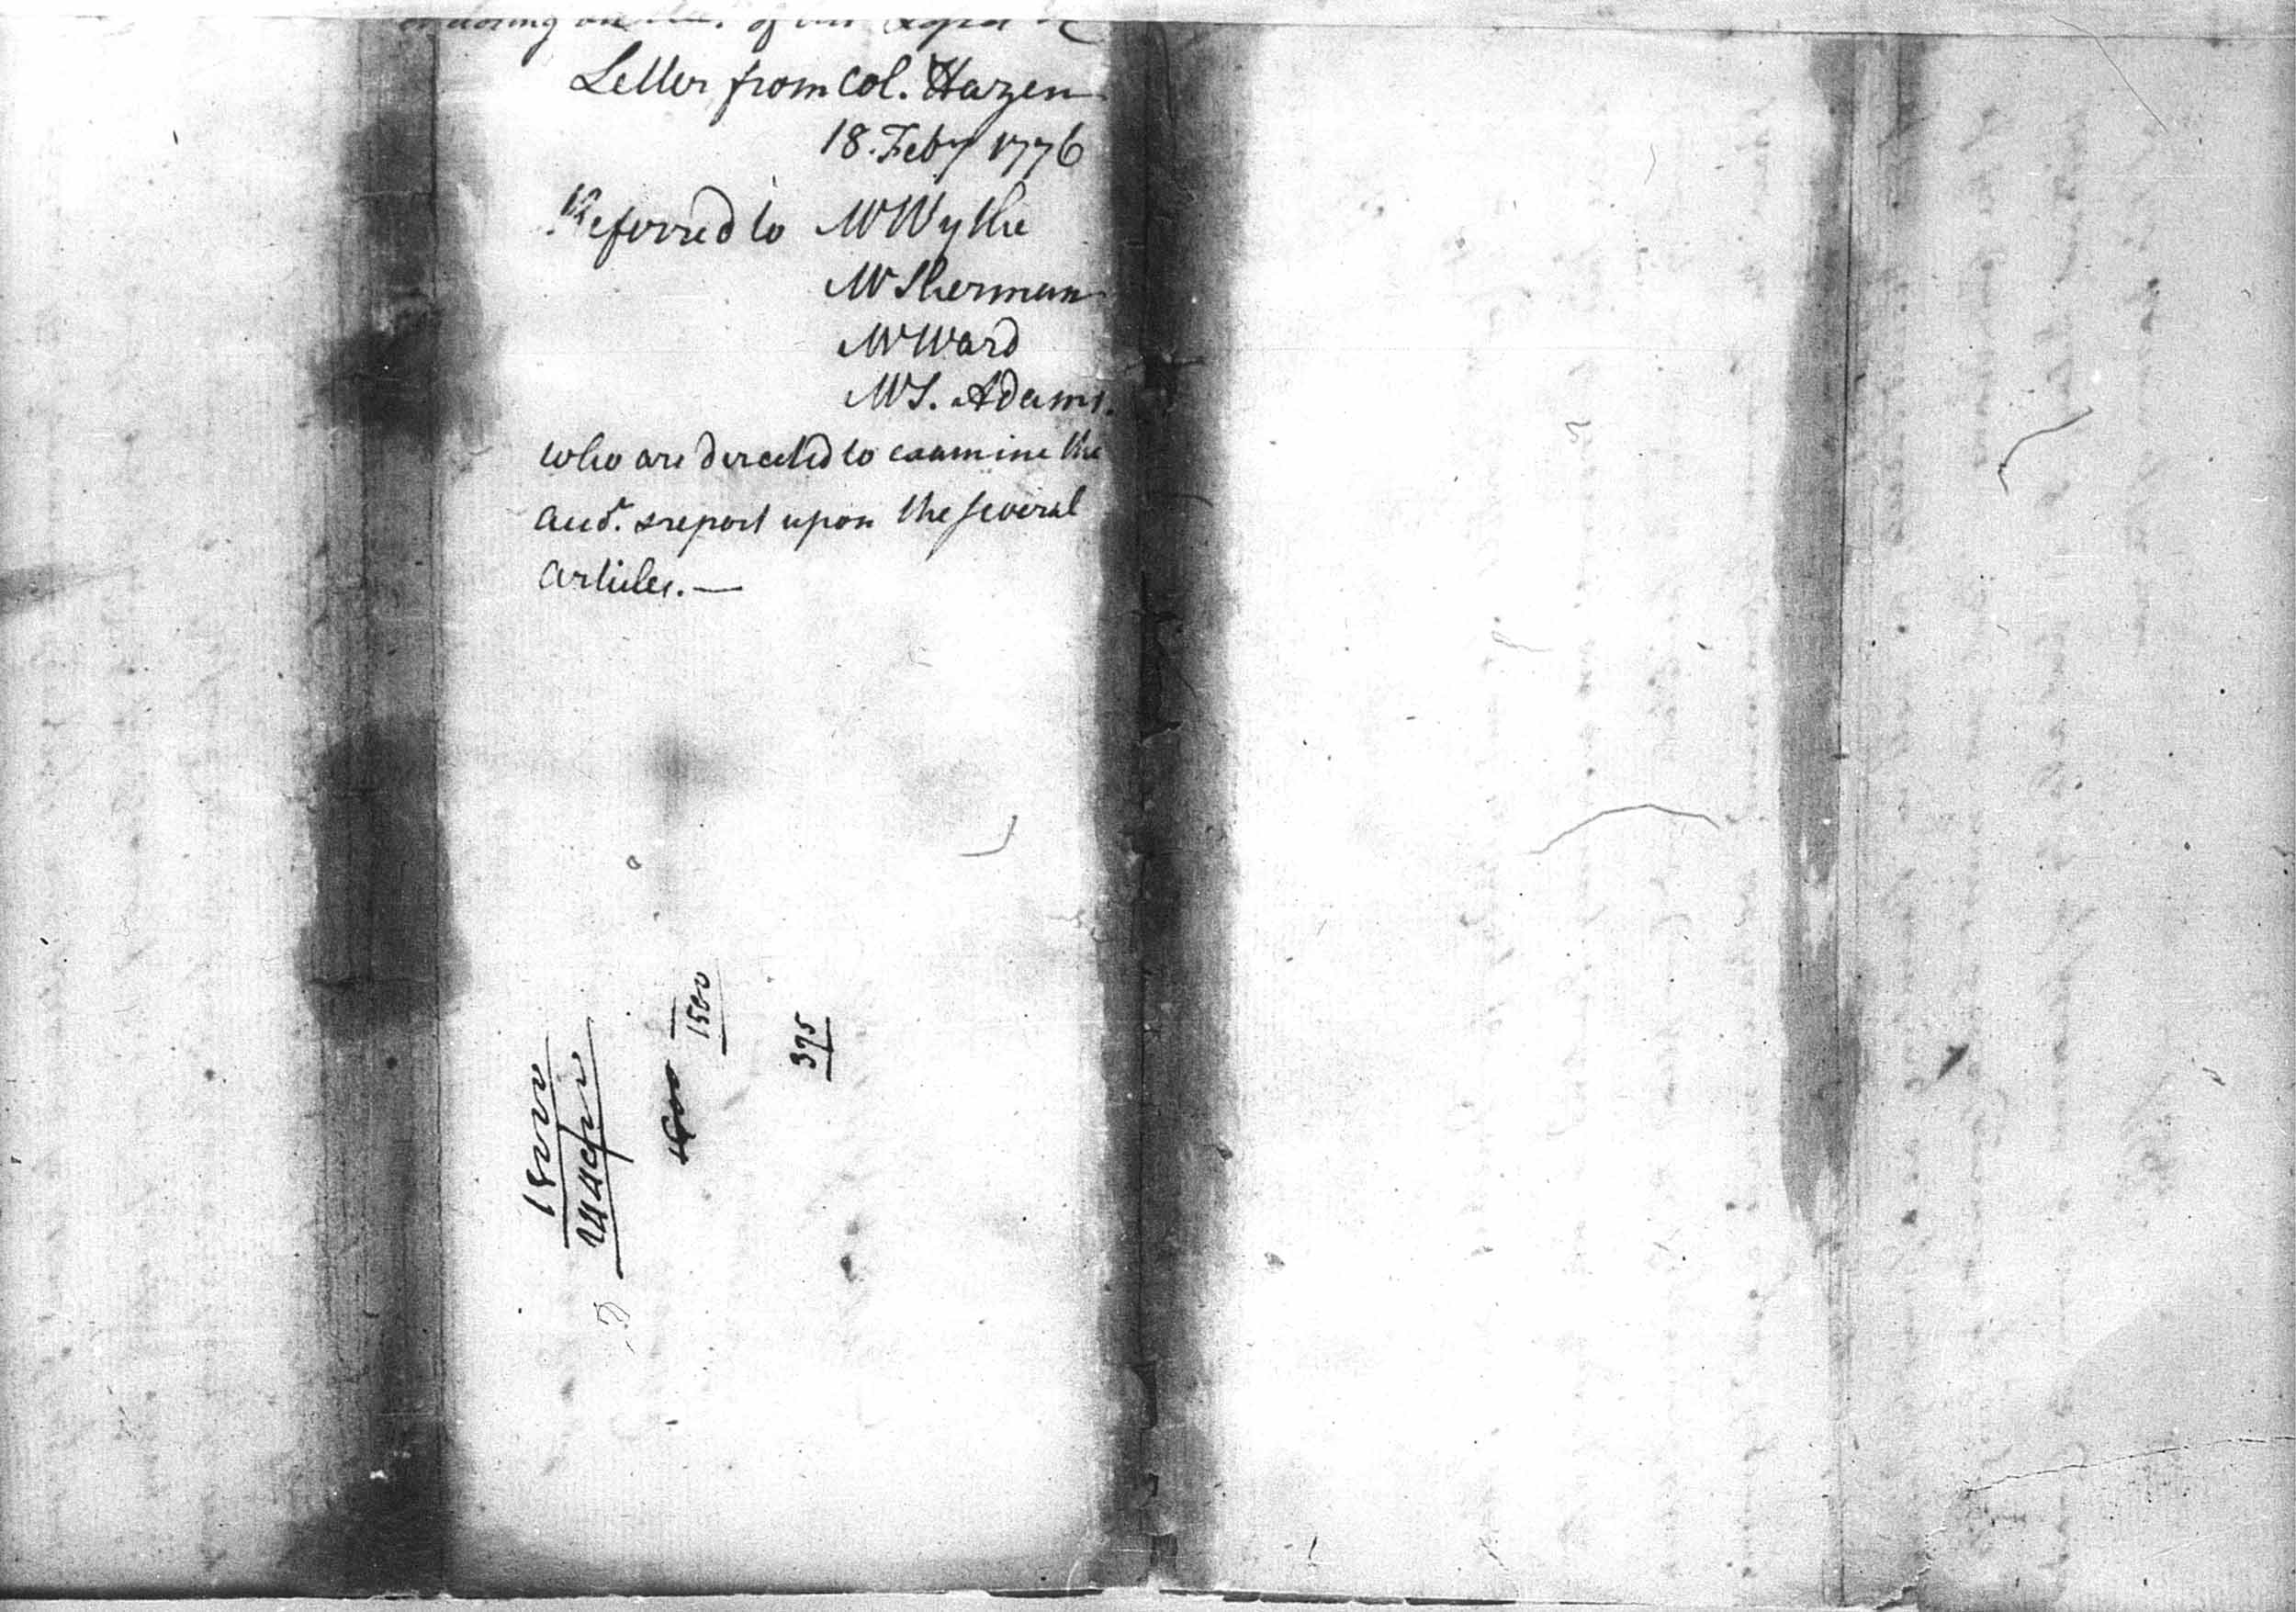 of our
Letter from Col. Hazen
18. Feby 1776
Referred to Mr Wythe
Mr Sherman
Mr Ward
Mr S. Adams.
who are directed to examine the
acct. & report upon the several
articles. —
1500
375